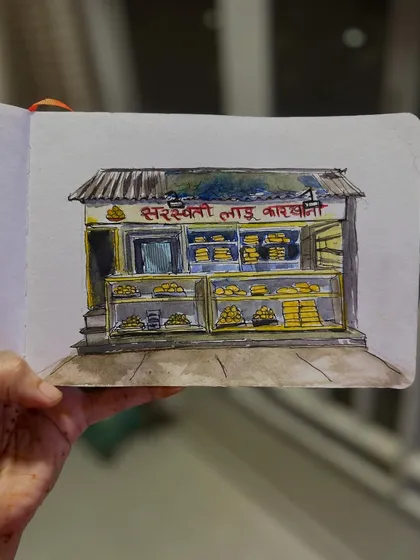 सरस्वती लाडू कारखाना